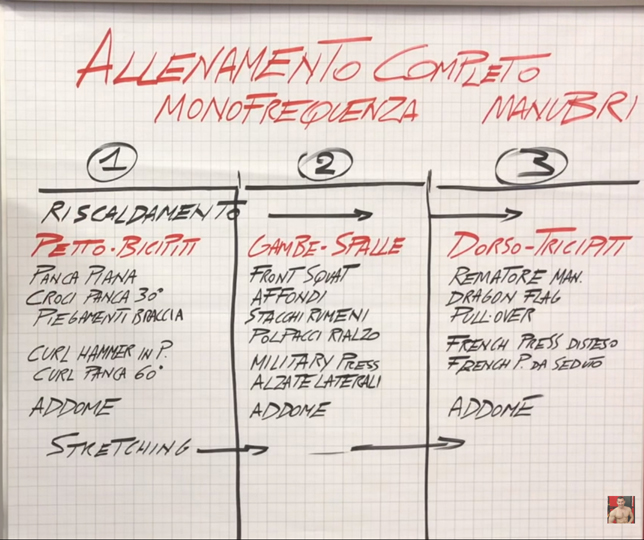 ALLENAMENTO COMPLETO
MONOFREQUENZA MANUBRI
1
2
3
RISCALDAMENTO
PETTO-BICIPITI
PANCA PIANA
CROCI PANCA 30°
PIEGAMENTI BRACCIA
CURL HAMMER IN P.
CURL PANCA 60°
ADDOME
STRETCHING
GAMBE-SPALLE
FRONT SQUAT
AFFONDI
STACCHI RUMENI
POLPACCI RIALZO
MILITARY PRESS
ALZATE LATERALI
ADDOME
DORSO-TRICIPITI
REMATORE MAN.
DRAGON FLAG
PULL-OVER
FRENCH PRESS DISTESO
FRENCH P. DA SEDUTO
ADDOME